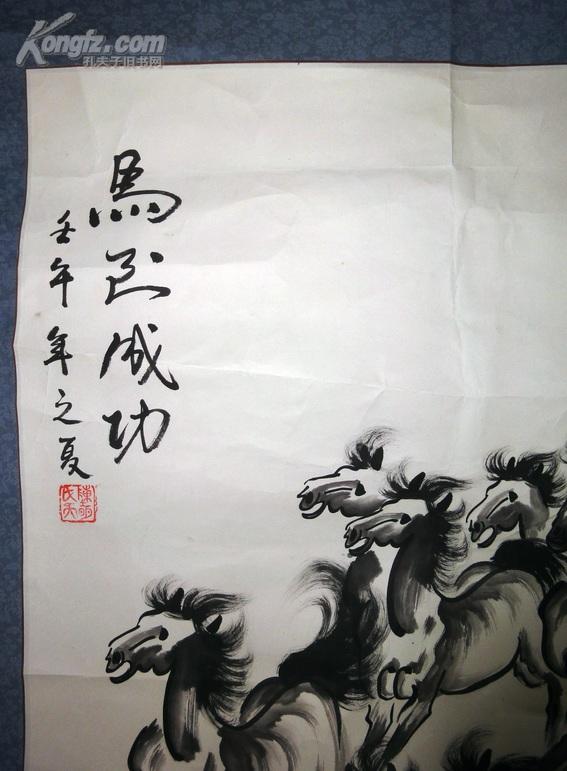 Kongfz.com
孔夫子旧书网
馬到成功
壬午年之夏